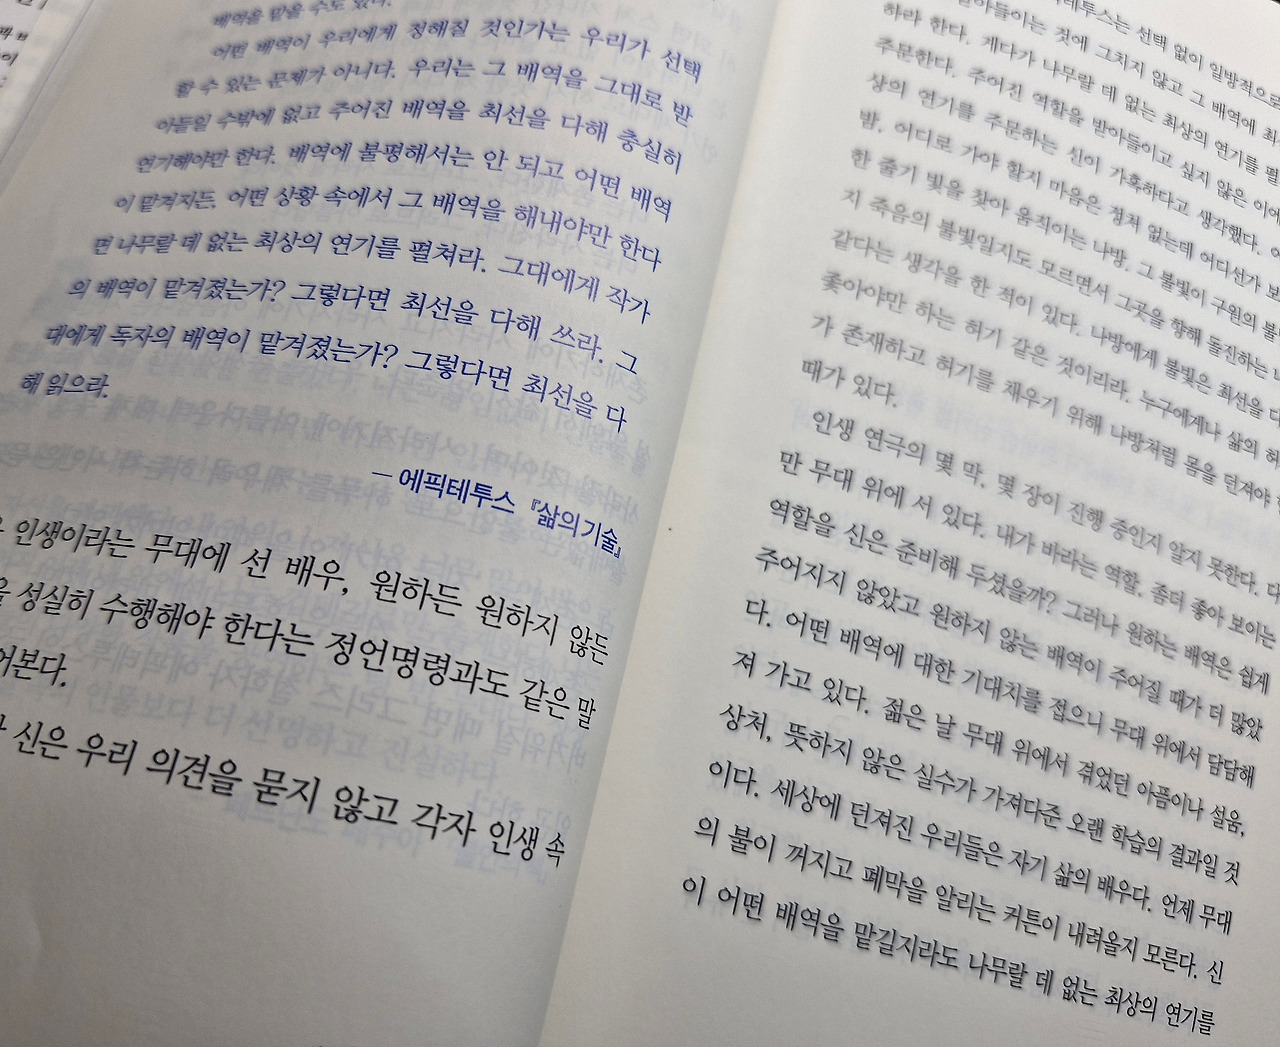 배역을 맡을 수도 있다.
어떤 배역이 우리에게 정해질 것인가는 우리가 선택
할 수 있는 문제가 아니다. 우리는 그 배역을 그대로 받
아들일 수밖에 없고 주어진 배역을 최선을 다해 충실히
연기해야만 한다. 배역에 불평해서는 안 되고 어떤 배역
이 맡겨지든, 어떤 상황 속에서 그 배역을 해내야만 한다
면 나무랄 데 없는 최상의 연기를 펼쳐라. 그대에게 작가
의 배역이 맡겨졌는가? 그렇다면 최선을 다해 쓰라. 그
대에게 독자의 배역이 맡겨졌는가? 그렇다면 최선을 다
해 읽으라.
─ 에픽테투스 『삶의 기술』
인생이라는 무대에 선 배우, 원하든 원하지 않든
성실히 수행해야 한다는 정언명령과도 같은 말
어본다.
신은 우리 의견을 묻지 않고 각자 인생 속
테투스는 선택 없이 일방적으로
받아들이는 것에 그치지 않고 그 배역에 최
하라 한다. 게다가 나무랄 데 없는 최상의 연기를 펼
주문한다. 주어진 역할을 받아들이고 싶지 않은 이에
상의 연기를 주문하는 신이 가혹하다고 생각했다.
밤. 어디로 가야 할지 마음은 정처 없는데 어디선가 보
한 줄기 빛을 찾아 움직이는 나방. 그 불빛이 구원의 불
지 죽음의 불빛일지도 모르면서 그곳을 향해 돌진하는 나
같다는 생각을 한 적이 있다. 나방에게 불빛은 최선을 다
좇아야만 하는 허기 같은 것이리라. 누구에게나 삶의 허
가 존재하고 허기를 채우기 위해 나방처럼 몸을 던져야
때가 있다.
인생 연극의 몇 막, 몇 장이 진행 중인지 알지 못한다. 다
만 무대 위에 서 있다. 내가 바라는 역할, 좀더 좋아 보이는
역할을 신은 준비해 두셨을까? 그러나 원하는 배역은 쉽게
주어지지 않았고 원하지 않는 배역이 주어질 때가 더 많았
다. 어떤 배역에 대한 기대치를 접으니 무대 위에서 담담해
져 가고 있다. 젊은 날 무대 위에서 겪었던 아픔이나 설움,
상처, 뜻하지 않은 실수가 가져다준 오랜 학습의 결과일 것
이다. 세상에 던져진 우리들은 자기 삶의 배우다. 언제 무대
의 불이 꺼지고 폐막을 알리는 커튼이 내려올지 모른다. 신
이 어떤 배역을 맡길지라도 나무랄 데 없는 최상의 연기를